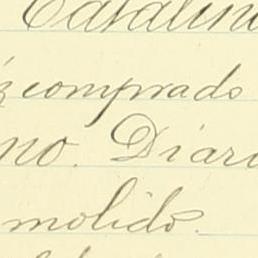 Catalin
comprado
no. Diari
molido.